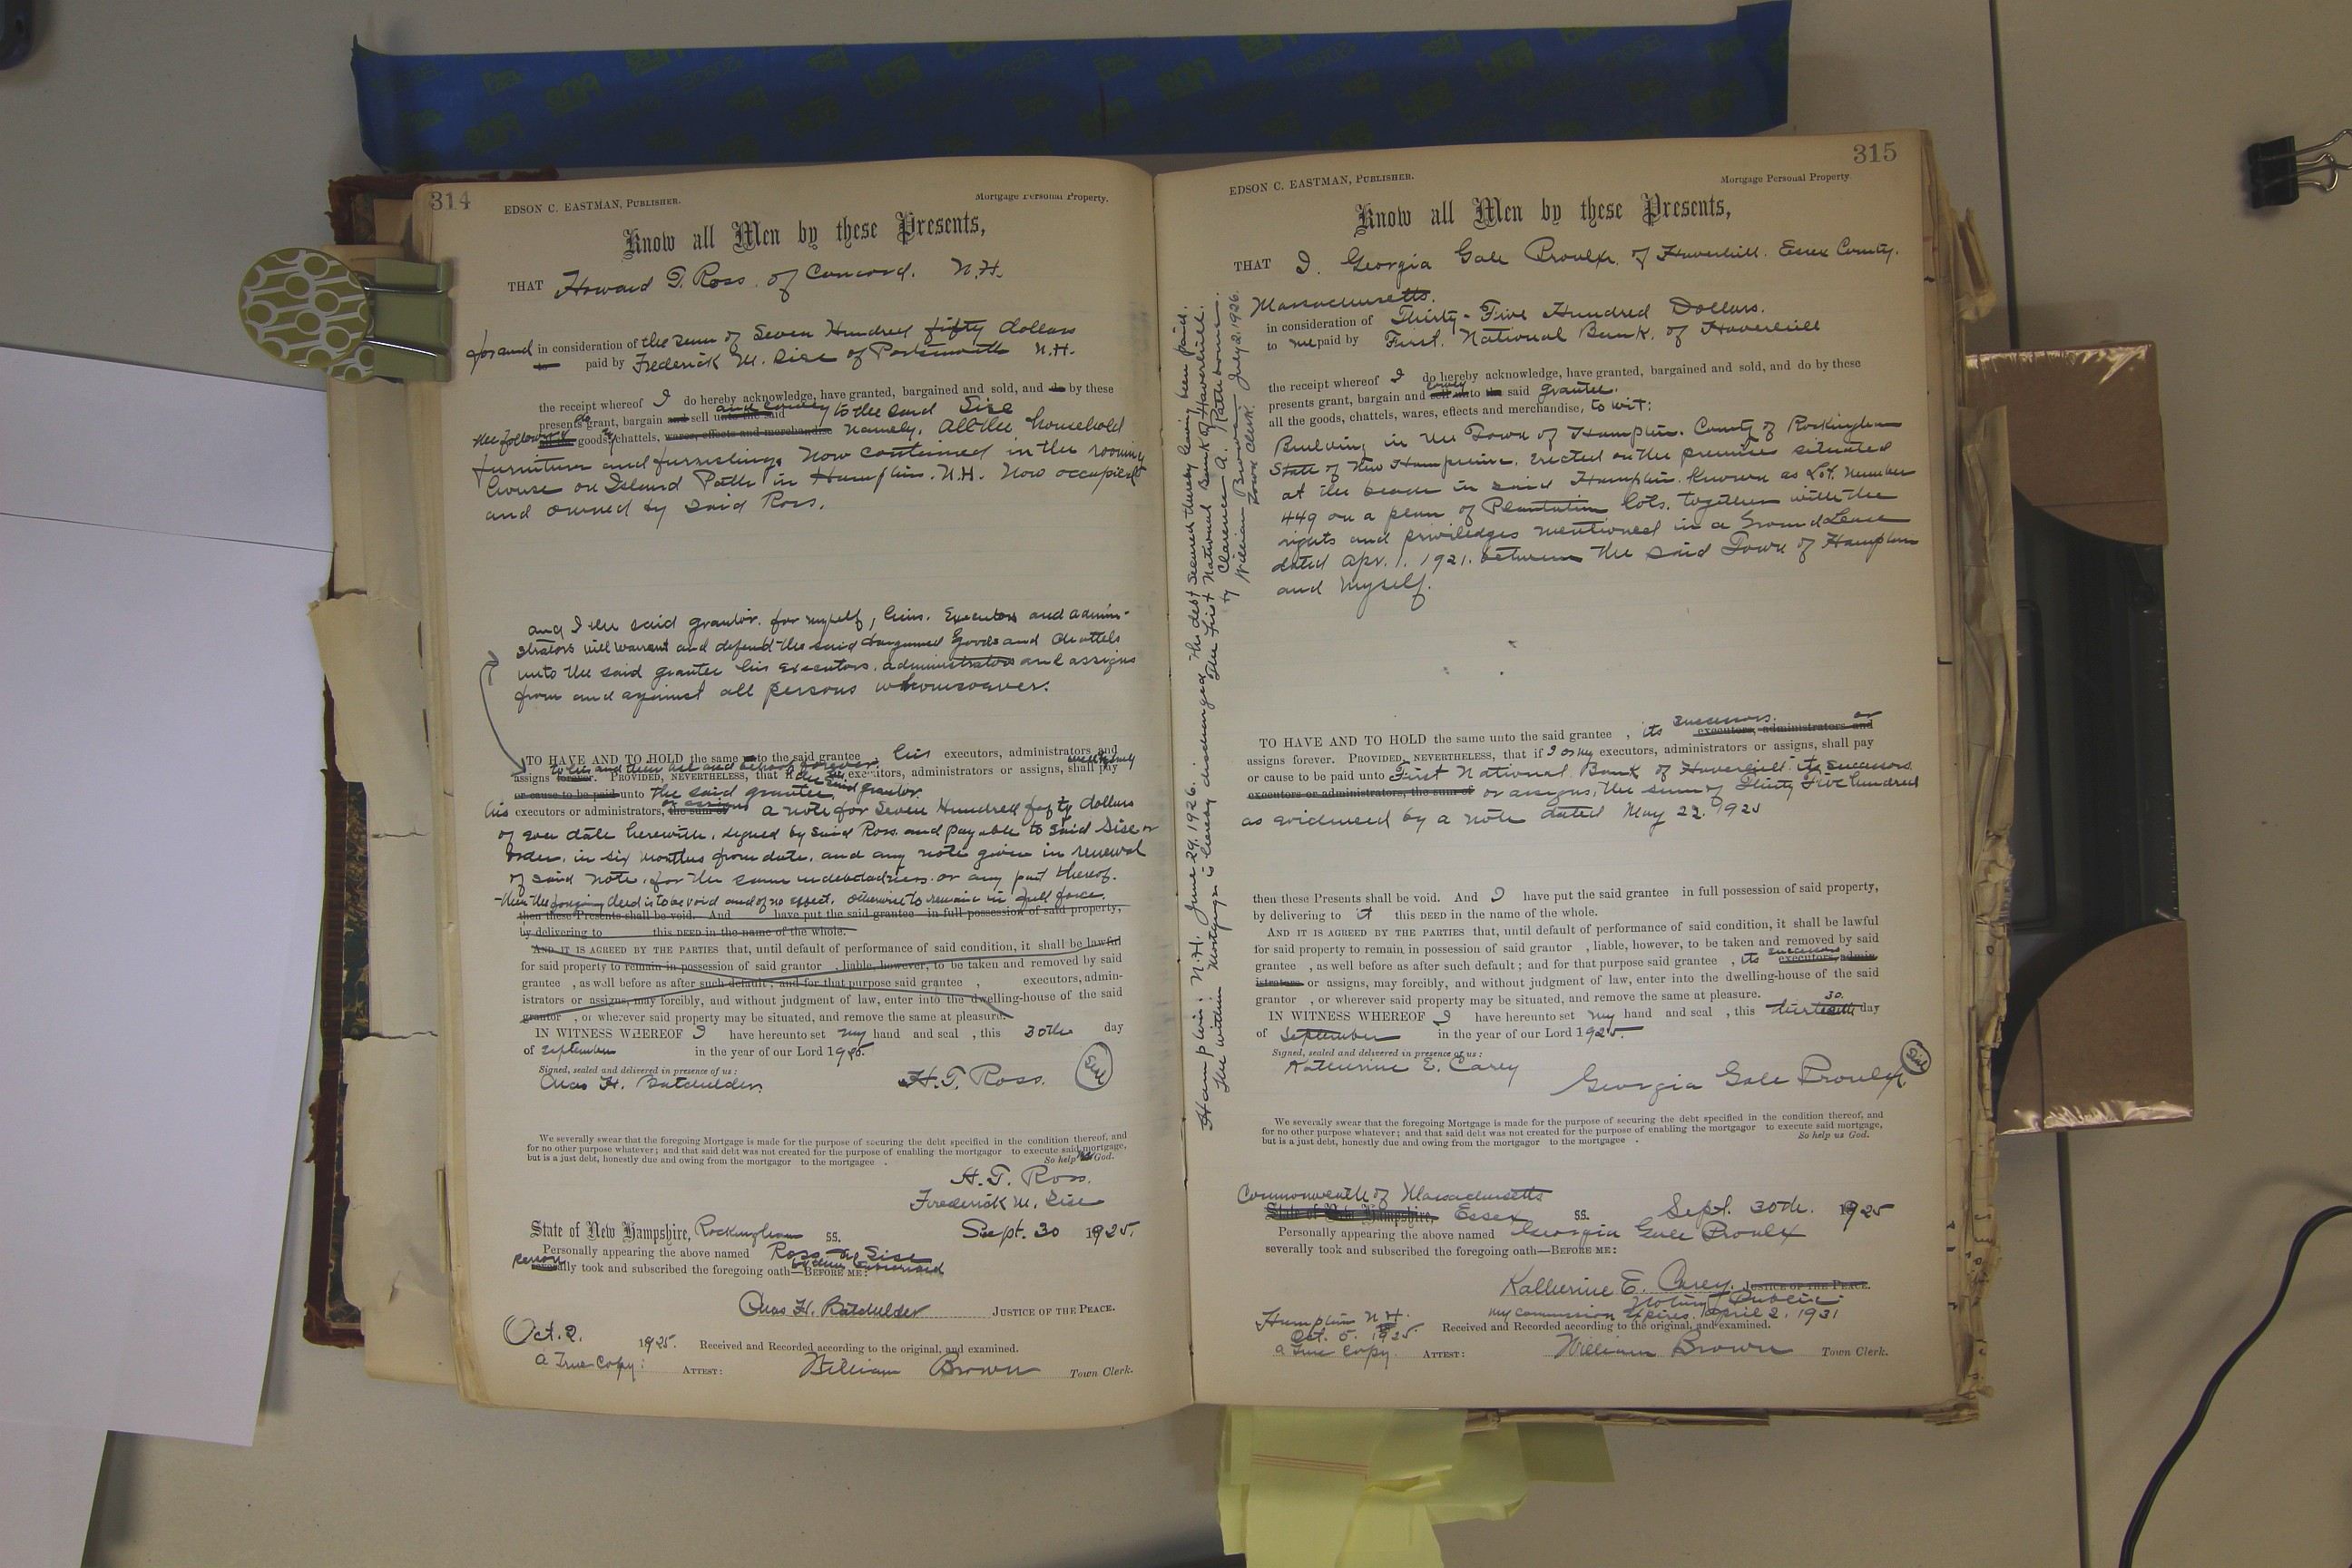 314
EDSON C. EASTMAN, PUBLISHER.
Mortgage Personal Property.
Know all Men by these Presents,
THAT Howard T. Ross. of Concord. N.H.
for and in consideration of the sum of Seven Hundred fifty dollars
to paid by Frederick M. Sise of Portsmouth N.H.
the receipt whereof I do hereby acknowledge, have granted, bargained and sold, and do by these
presents do grant, bargain and sell and convey unto the said to the said Sise
the following all the goods, chattels, wares, effects and merchandise Namely. All the household
furniture and furnishings now contained in the rooming
house on Island Path in Hampton. N.H. Now occupied
and owned by said Ross.
and I the said grantor. for myself, heirs. Executors and admin-
strators will warrant and defend the said bargained Goods and chattels
unto the said grantee his executors. administrators and assigns
from and against all persons whomsoever.
TO HAVE AND TO HOLD the same unto the said grantee , his executors, administrators and
to his and their use and behoof forever.
assigns forever. PROVIDED, NEVERTHELESS, that if the said grantor executors, administrators or assigns, shall pay
or cause to be paid unto the said grantee,
his executors or administrators, or assigns the sum of a note for Seven Hundred fifty dollars
of even date herewith. signed by said Ross and payable to said Sise or
order. in six months from date. and any note given in renewal
of said note. for the same indebtedness. or any part thereof.
- then the foregoing deed is to be void and of no effect. otherwise to remain in full force.
then these Presents shall be void. And have put the said grantee in full possession of said property,
by delivering to this DEED in the name of the whole.
AND IT IS AGREED BY THE PARTIES that, until default of performance of said condition, it shall be lawful
for said property to remain in possession of said grantor , liable, however, to be taken and removed by said
grantee , as well before as after such default ; and for that purpose said grantee , executors, admin-
istrators or assigns, may forcibly, and without judgment of law, enter into the dwelling-house of the said
grantor , or wherever said property may be situated, and remove the same at pleasure.
IN WITNESS WHEREOF I have hereunto set my hand and seal , this 30th day
of September in the year of our Lord 1925.
Signed, sealed and delivered in presence of us :
Chas H. Batchelder. H. T. Ross. Seal
We severally swear that the foregoing Mortgage is made for the purpose of securing the debt specified in the condition thereof, and
for no other purpose whatever ; and that said debt was not created for the purpose of enabling the mortgagor to execute said mortgage,
but is a just debt, honestly due and owing from the mortgagor to the mortgagee . So help God.
H. T. Ross.
Frederick M. Sise
State of New Hampshire, Rockingham SS. Sept. 30 1925.
Personally appearing the above named Ross and Sise
severally took and subscribed the foregoing oath—BEFORE ME:
Chas H. Batchelder JUSTICE OF THE PEACE.
Oct. 2. 1925. Received and Recorded according to the original, and examined.
a True Copy: ATTEST: William Brown Town Clerk.
315
EDSON C. EASTMAN, PUBLISHER.
Mortgage Personal Property.
Know all Men by these Presents,
THAT I. Georgia Gale Proulx. of Haverhill. Essex County.
Massachusetts.
in consideration of Thirty-Five Hundred Dollars.
to me paid by First. National Bank. of Haverhill
the receipt whereof I do hereby acknowledge, have granted, bargained and sold, and do by these
presents grant, bargain and convey sell unto the said grantee.
all the goods, chattels, wares, effects and merchandise, to wit:
Building in the Town of Hampton. County of Rockingham
State of New Hampshire. Erected on the premises situated
at the beach in said Hampton. known as Lot Number
449 on a plan of Plantation lots. together with the
rights and priviledges mentioned in a Ground Lease
dated Apr. 1. 1921. between the said Town of Hampton
and myself.
TO HAVE AND TO HOLD the same unto the said grantee , its successors. executors, administrators and or
assigns forever. PROVIDED, NEVERTHELESS, that if I or my executors, administrators or assigns, shall pay
or cause to be paid unto First National Bank of Haverhill its successors
executors or administrators, the sum of or assigns, the sum of Thirty Five hundred
as evidenced by a note dated May 22. 1925
then these Presents shall be void. And I have put the said grantee in full possession of said property,
by delivering to it this DEED in the name of the whole.
AND IT IS AGREED BY THE PARTIES that, until default of performance of said condition, it shall be lawful
for said property to remain in possession of said grantor , liable, however, to be taken and removed by said
grantee , as well before as after such default ; and for that purpose said grantee , its successors executors, admin-
istrators or assigns, may forcibly, and without judgment of law, enter into the dwelling-house of the said
grantor , or wherever said property may be situated, and remove the same at pleasure.
IN WITNESS WHEREOF I have hereunto set my hand and seal , this 30. day
of September in the year of our Lord 1925.
Signed, sealed and delivered in presence of us :
Katherine E. Carey
Georgia Gale Proulx Seal
We severally swear that the foregoing Mortgage is made for the purpose of securing the debt specified in the condition thereof, and
for no other purpose whatever ; and that said debt was not created for the purpose of enabling the mortgagor to execute said mortgage,
but is a just debt, honestly due and owing from the mortgagor to the mortgagee . So help us God.
Commonwealth of Massachusetts
State of New Hampshire, Essex SS. Sept. 30th. 1925
Personally appearing the above named Georgia Gale Proulx
severally took and subscribed the foregoing oath—BEFORE ME:
Katherine E. Carey. JUSTICE OF THE PEACE.
Notary Public.
my commission expires April 2. 1931
Hampton N.H.
Oct. 5. 1925. Received and Recorded according to the original, and examined.
a True Copy. ATTEST: William Brown Town Clerk.
Hampton: N.H. June 29. 1926. The debt secured thereby having been paid.
The within Mortgage is hereby discharged
The First National Bank of Haverhill.
by Clarence A. Rathbone.
William Brown July 2, 1926.
Town Clerk.